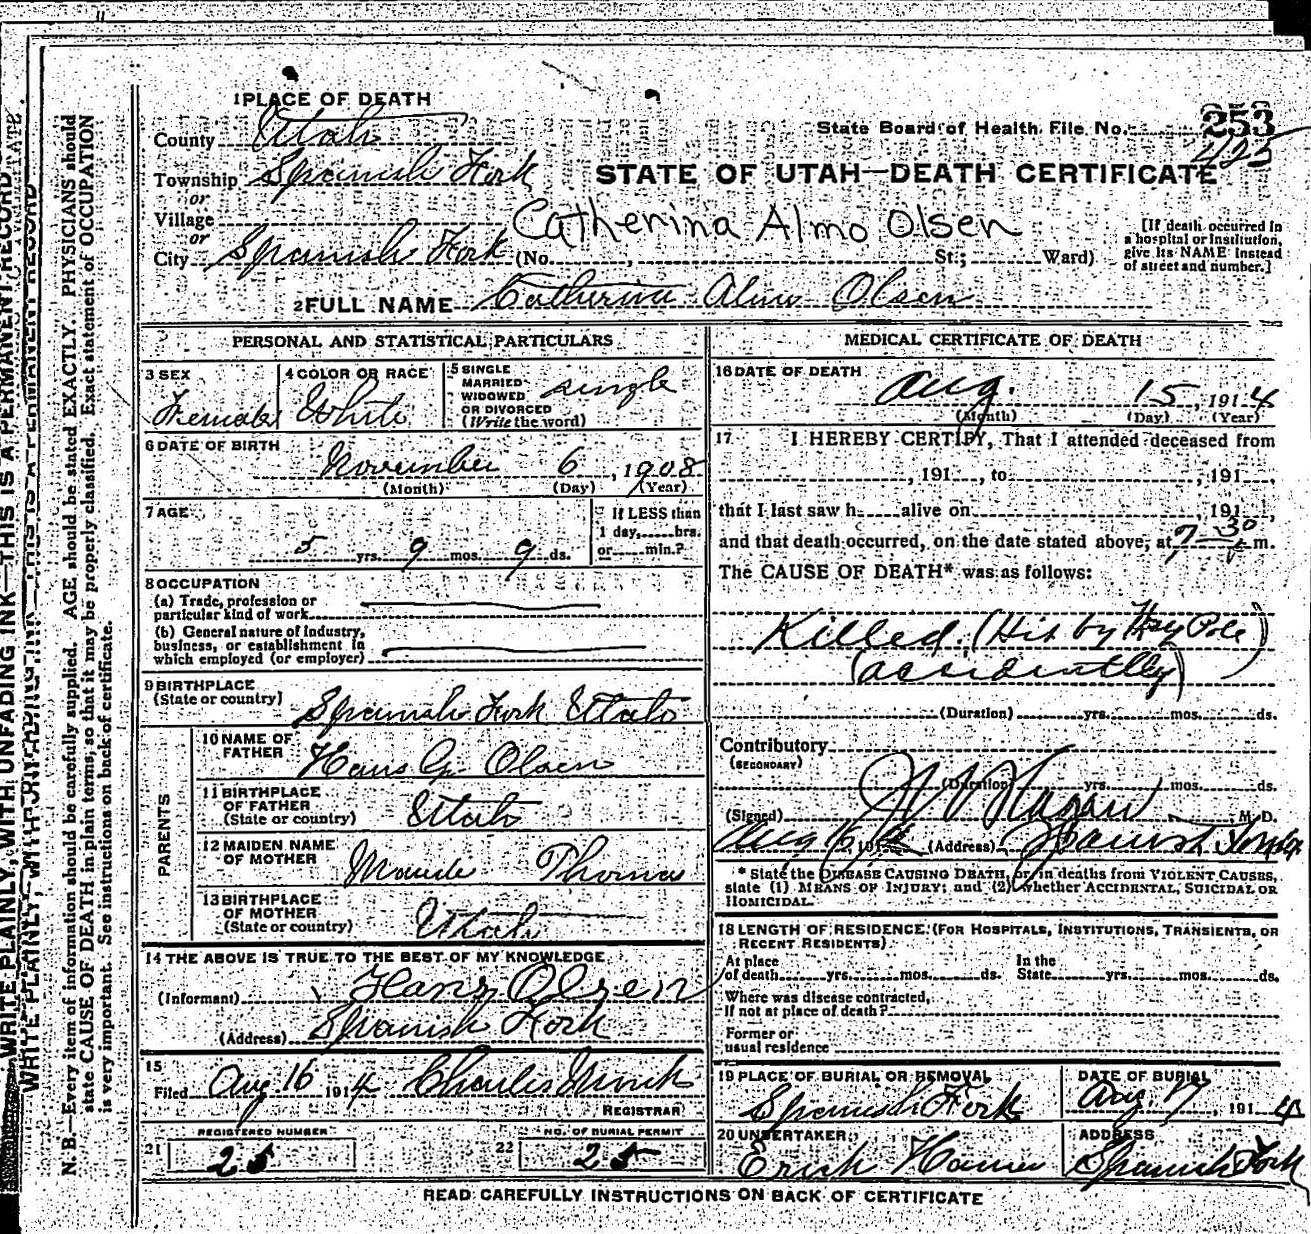 1 PLACE OF DEATH
County Utah
Township Spanish Fork
or
Village
or
City Spanish Fork (No. St.; Ward)
State Board of Health File No. 253
423
STATE OF UTAH—DEATH CERTIFICATE
Catherina Almo Olsen
[If death occurred in
a hospital or institution,
give its NAME instead
of street and number.]
2 FULL NAME Catherina Almo Olsen
PERSONAL AND STATISTICAL PARTICULARS
3 SEX
Female
4 COLOR OR RACE
White
5 SINGLE
MARRIED
WIDOWED
OR DIVORCED
(Write the word)
single
6 DATE OF BIRTH
November 6, 1908
(Month) (Day) (Year)
7 AGE
5 yrs. 9 mos. 9 ds.
If LESS than
1 day, hrs.
or min.?
8 OCCUPATION
(a) Trade, profession or
particular kind of work
(b) General nature of Industry,
business, or establishment in
which employed (or employer)
9 BIRTHPLACE
(State or country) Spanish Fork Utah
PARENTS
10 NAME OF
FATHER Hans G. Olsen
11 BIRTHPLACE
OF FATHER
(State or country) Utah
12 MAIDEN NAME
OF MOTHER Maude Thomas
13 BIRTHPLACE
OF MOTHER
(State or country) Utah
14 THE ABOVE IS TRUE TO THE BEST OF MY KNOWLEDGE
(Informant) Hans Olsen
(Address) Spanish Fork
15
Filed Aug 16 1914 Charles Monk
REGISTRAR
REGISTERED NUMBER
21 25
NO. OF BURIAL PERMIT
22 25
MEDICAL CERTIFICATE OF DEATH
16 DATE OF DEATH
Aug. 15, 1914
(Month) (Day) (Year)
17 I HEREBY CERTIFY, That I attended deceased from
, 191 , to , 191 ,
that I last saw h alive on , 191 ,
and that death occurred, on the date stated above, at 7 30 m.
The CAUSE OF DEATH* was as follows:
Killed, (Hit by Hay Pole)
(accidentally)
(Duration) yrs. mos. ds.
Contributory
(SECONDARY)
(Duration) yrs. mos. ds.
(Signed) M. D.
Aug 16 1914 (Address) Spanish Fork
* State the DISEASE CAUSING DEATH, or in deaths from VIOLENT CAUSES,
state (1) MEANS OF INJURY; and (2) whether ACCIDENTAL, SUICIDAL OR
HOMICIDAL.
18 LENGTH OF RESIDENCE (FOR HOSPITALS, INSTITUTIONS, TRANSIENTS, OR
RECENT RESIDENTS)
At place
of death yrs. mos. ds.
In the
State yrs. mos. ds.
Where was disease contracted,
if not at place of death?
Former or
usual residence
19 PLACE OF BURIAL OR REMOVAL
Spanish Fork
DATE OF BURIAL
Aug. 17, 1914
20 UNDERTAKER
Erick
ADDRESS
Spanish Fork
READ CAREFULLY INSTRUCTIONS ON BACK OF CERTIFICATE
WRITE PLAINLY, WITH UNFADING INK—THIS IS A PERMANENT RECORD
WRITE PLAINLY, WITH UNFADING INK—THIS IS A PERMANENT RECORD
N. B.—Every item of information should be carefully supplied. AGE should be stated EXACTLY. PHYSICIANS should
state CAUSE OF DEATH in plain terms, so that it may be properly classified. Exact statement of OCCUPATION
is very important. See instructions on back of certificate.